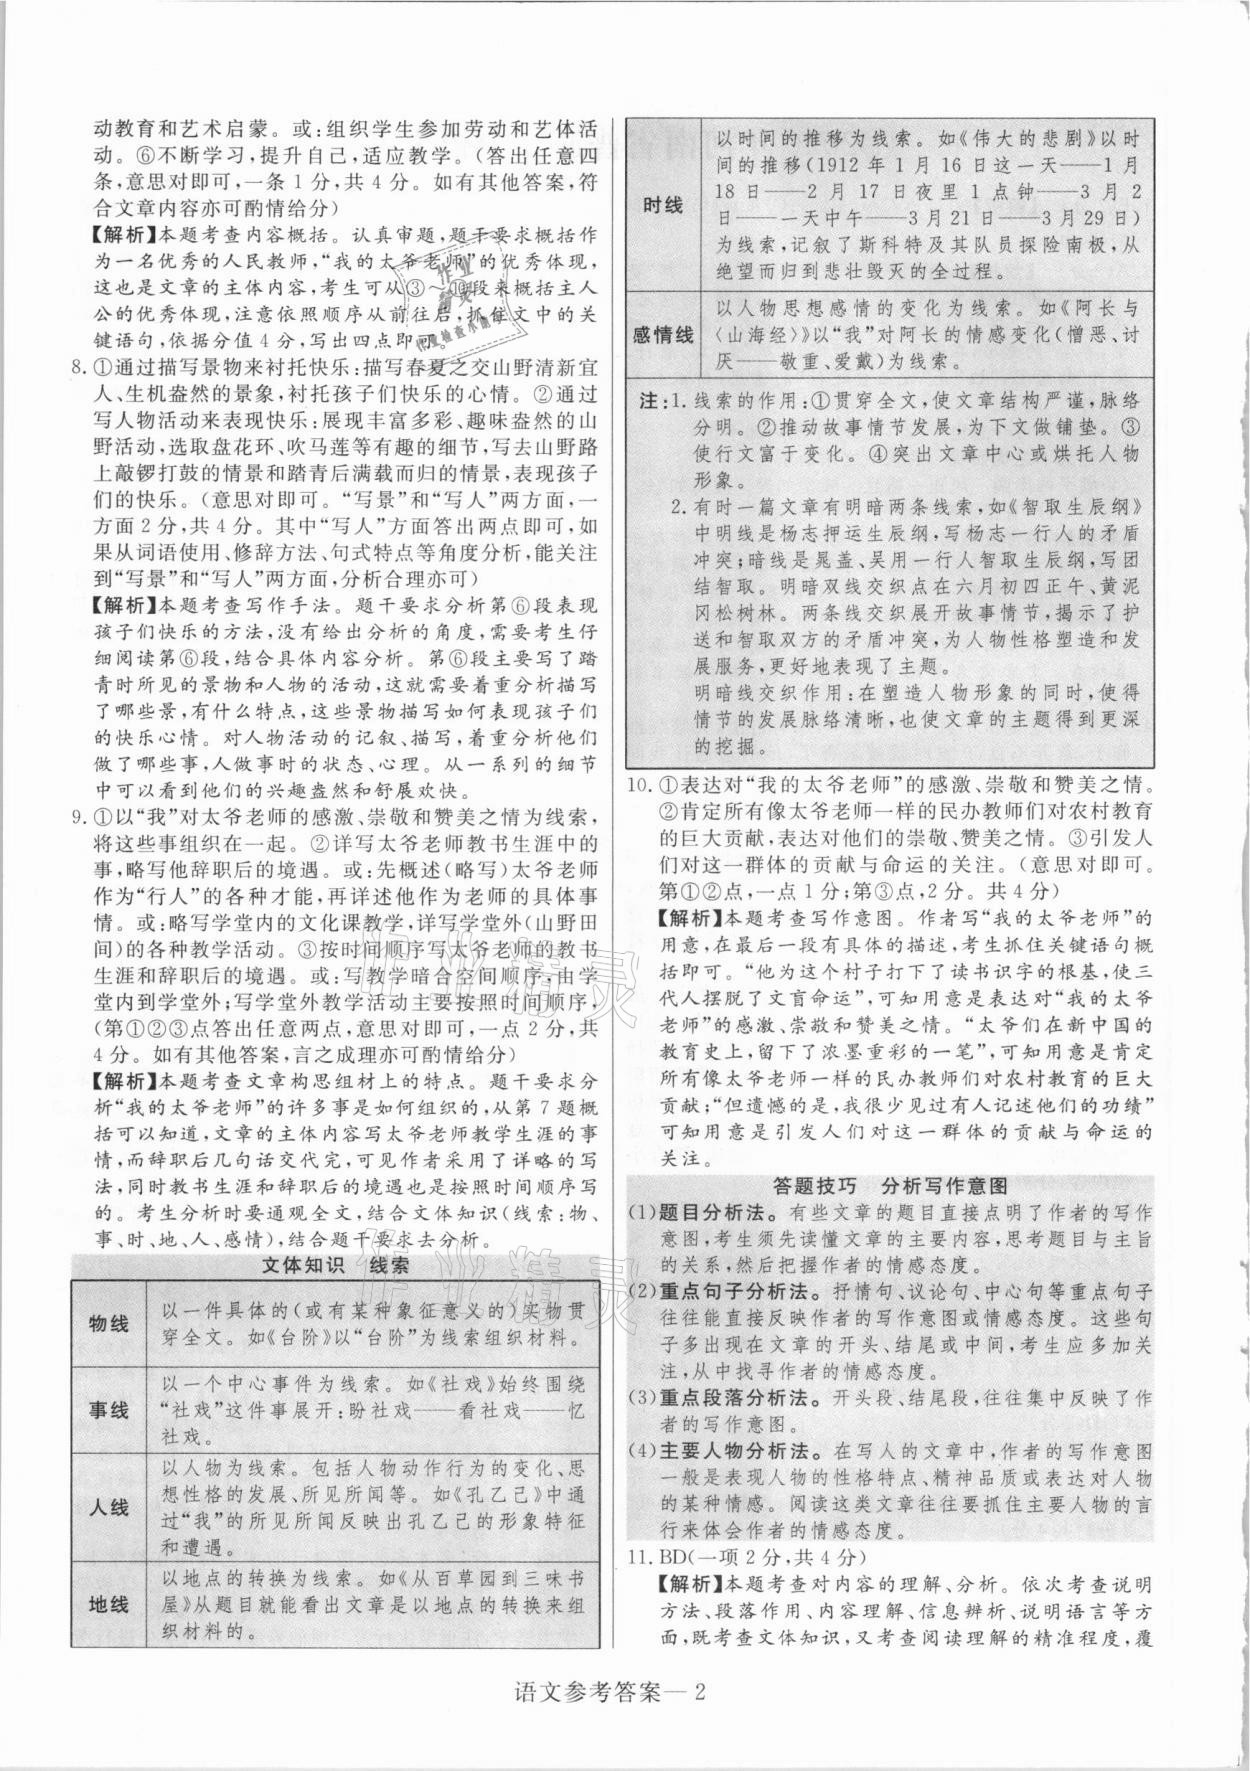 动教育和艺术启蒙。或:组织学生参加劳动和艺体活
动。⑥不断学习,提升自己,适应教学。(答出任意四
条,意思对即可,一条1分,共4分。如有其他答案,符
合文章内容亦可酌情给分)
【解析】本题考查内容概括。认真审题,题干要求概括作
为一名优秀的人民教师,“我的太爷老师”的优秀体现,
这也是文章的主体内容,考生可从③~⑩段来概括主人
公的优秀体现,注意依照顺序从前往后,抓住文中的关
键语句,依据分值4分,写出四点即可。
8.①通过描写景物来衬托快乐:描写春夏之交山野清新宜
人、生机盎然的景象,衬托孩子们快乐的心情。②通过
写人物活动来表现快乐:展现丰富多彩、趣味盎然的山
野活动,选取盘花环、吹马莲等有趣的细节,写去山野路
上敲锣打鼓的情景和踏青后满载而归的情景,表现孩子
们的快乐。(意思对即可。“写景”和“写人”两方面,一
方面2分,共4分。其中“写人”方面答出两点即可,如
果从词语使用、修辞方法、句式特点等角度分析,能关注
到“写景”和“写人”两方面,分析合理亦可)
【解析】本题考查写作手法。题干要求分析第⑥段表现
孩子们快乐的方法,没有给出分析的角度,需要考生仔
细阅读第⑥段,结合具体内容分析。第⑥段主要写了踏
青时所见的景物和人物的活动,这就需要着重分析描写
了哪些景,有什么特点,这些景物描写如何表现孩子们
的快乐心情。对人物活动的记叙、描写,着重分析他们
做了哪些事,人做事时的状态、心理。从一系列的细节
中可以看到他们的兴趣盎然和舒展欢快。
9.①以“我”对太爷老师的感激、崇敬和赞美之情为线索,
将这些事组织在一起。②详写太爷老师教书生涯中的
事,略写他辞职后的境遇。或:先概述(略写)太爷老师
作为“行人”的各种才能,再详述他作为老师的具体事
情。或:略写学堂内的文化课教学,详写学堂外(山野田
间)的各种教学活动。③按时间顺序写太爷老师的教书
生涯和辞职后的境遇。或:写教学暗合空间顺序,由学
堂内到学堂外;写学堂外教学活动主要按照时间顺序,
(第①②③点答出任意两点,意思对即可,一点2分,共
4分。如有其他答案,言之成理亦可酌情给分)
【解析】本题考查文章构思组材上的特点。题干要求分
析“我的太爷老师”的许多事是如何组织的,从第7题概
括可以知道,文章的主体内容写太爷老师教学生涯的事
情,而辞职后几句话交代完,可见作者采用了详略的写
法,同时教书生涯和辞职后的境遇也是按照时间顺序写
的。考生分析时要通观全文,结合文体知识(线索:物、
事、时、地、人、感情),结合题干要求去分析。
文体知识 线索
物线
以一件具体的(或有某种象征意义的)实物贯
穿全文。如《台阶》以“台阶”为线索组织材料。
事线
以一个中心事件为线索。如《社戏》始终围绕
“社戏”这件事展开:盼社戏——看社戏——忆
社戏。
人线
以人物为线索。包括人物动作行为的变化、思
想性格的发展、所见所闻等。如《孔乙己》中通
过“我”的所见所闻反映出孔乙己的形象特征
和遭遇。
地线
以地点的转换为线索。如《从百草园到三味书
屋》从题目就能看出文章是以地点的转换来组
织材料的。
时线
以时间的推移为线索。如《伟大的悲剧》以时
间的推移(1912年1月16日这一天——1月
18日——2月17日夜里1点钟——3月2
日——一天中午——3月21日——3月29日)
为线索,记叙了斯科特及其队员探险南极,从
绝望而归到悲壮毁灭的全过程。
感情线
以人物思想感情的变化为线索。如《阿长与
〈山海经〉》以“我”对阿长的情感变化(憎恶、讨
厌——敬重、爱戴)为线索。
注:1.线索的作用:①贯穿全文,使文章结构严谨,脉络
分明。②推动故事情节发展,为下文做铺垫。③
使行文富于变化。④突出文章中心或烘托人物
形象。
2.有时一篇文章有明暗两条线索,如《智取生辰纲》
中明线是杨志押运生辰纲,写杨志一行人的矛盾
冲突;暗线是晁盖、吴用一行人智取生辰纲,写团
结智取。明暗双线交织点在六月初四正午、黄泥
冈松树林。两条线交织展开故事情节,揭示了护
送和智取双方的矛盾冲突,为人物性格塑造和发
展服务,更好地表现了主题。
明暗线交织作用:在塑造人物形象的同时,使得
情节的发展脉络清晰,也使文章的主题得到更深
的挖掘。
10.①表达对“我的太爷老师”的感激、崇敬和赞美之情。
②肯定所有像太爷老师一样的民办教师们对农村教育
的巨大贡献,表达对他们的崇敬、赞美之情。③引发人
们对这一群体的贡献与命运的关注。(意思对即可。
第①②点,一点1分;第③点,2分。共4分)
【解析】本题考查写作意图。作者写“我的太爷老师”的
用意,在最后一段有具体的描述,考生抓住关键语句概
括即可。“他为这个村子打下了读书识字的根基,使三
代人摆脱了文盲命运”,可知用意是表达对“我的太爷
老师”的感激、崇敬和赞美之情。“太爷们在新中国的
教育史上,留下了浓墨重彩的一笔”,可知用意是肯定
所有像太爷老师一样的民办教师们对农村教育的巨大
贡献;“但遗憾的是,我很少见过有人记述他们的功绩”
可知用意是引发人们对这一群体的贡献与命运的
关注。
答题技巧 分析写作意图
(1)题目分析法。有些文章的题目直接点明了作者的写作
意图,考生须先读懂文章的主要内容,思考题目与主旨
的关系,然后把握作者的情感态度。
(2)重点句子分析法。抒情句、议论句、中心句等重点句子
往往能直接反映作者的写作意图或情感态度。这些句
子多出现在文章的开头、结尾或中间,考生应多加关
注,从中找寻作者的情感态度。
(3)重点段落分析法。开头段、结尾段,往往集中反映了作
者的写作意图。
(4)主要人物分析法。在写人的文章中,作者的写作意图
一般是表现人物的性格特点、精神品质或表达对人物
的某种情感。阅读这类文章往往要抓住主要人物的言
行来体会作者的情感态度。
11.BD(一项2分,共4分)
【解析】本题考查对内容的理解、分析。依次考查说明
方法、段落作用、内容理解、信息辨析、说明语言等方
面,既考查文体知识,又考查阅读理解的精准程度,覆
语文参考答案—2
作业精灵
作业精灵
作业
精灵